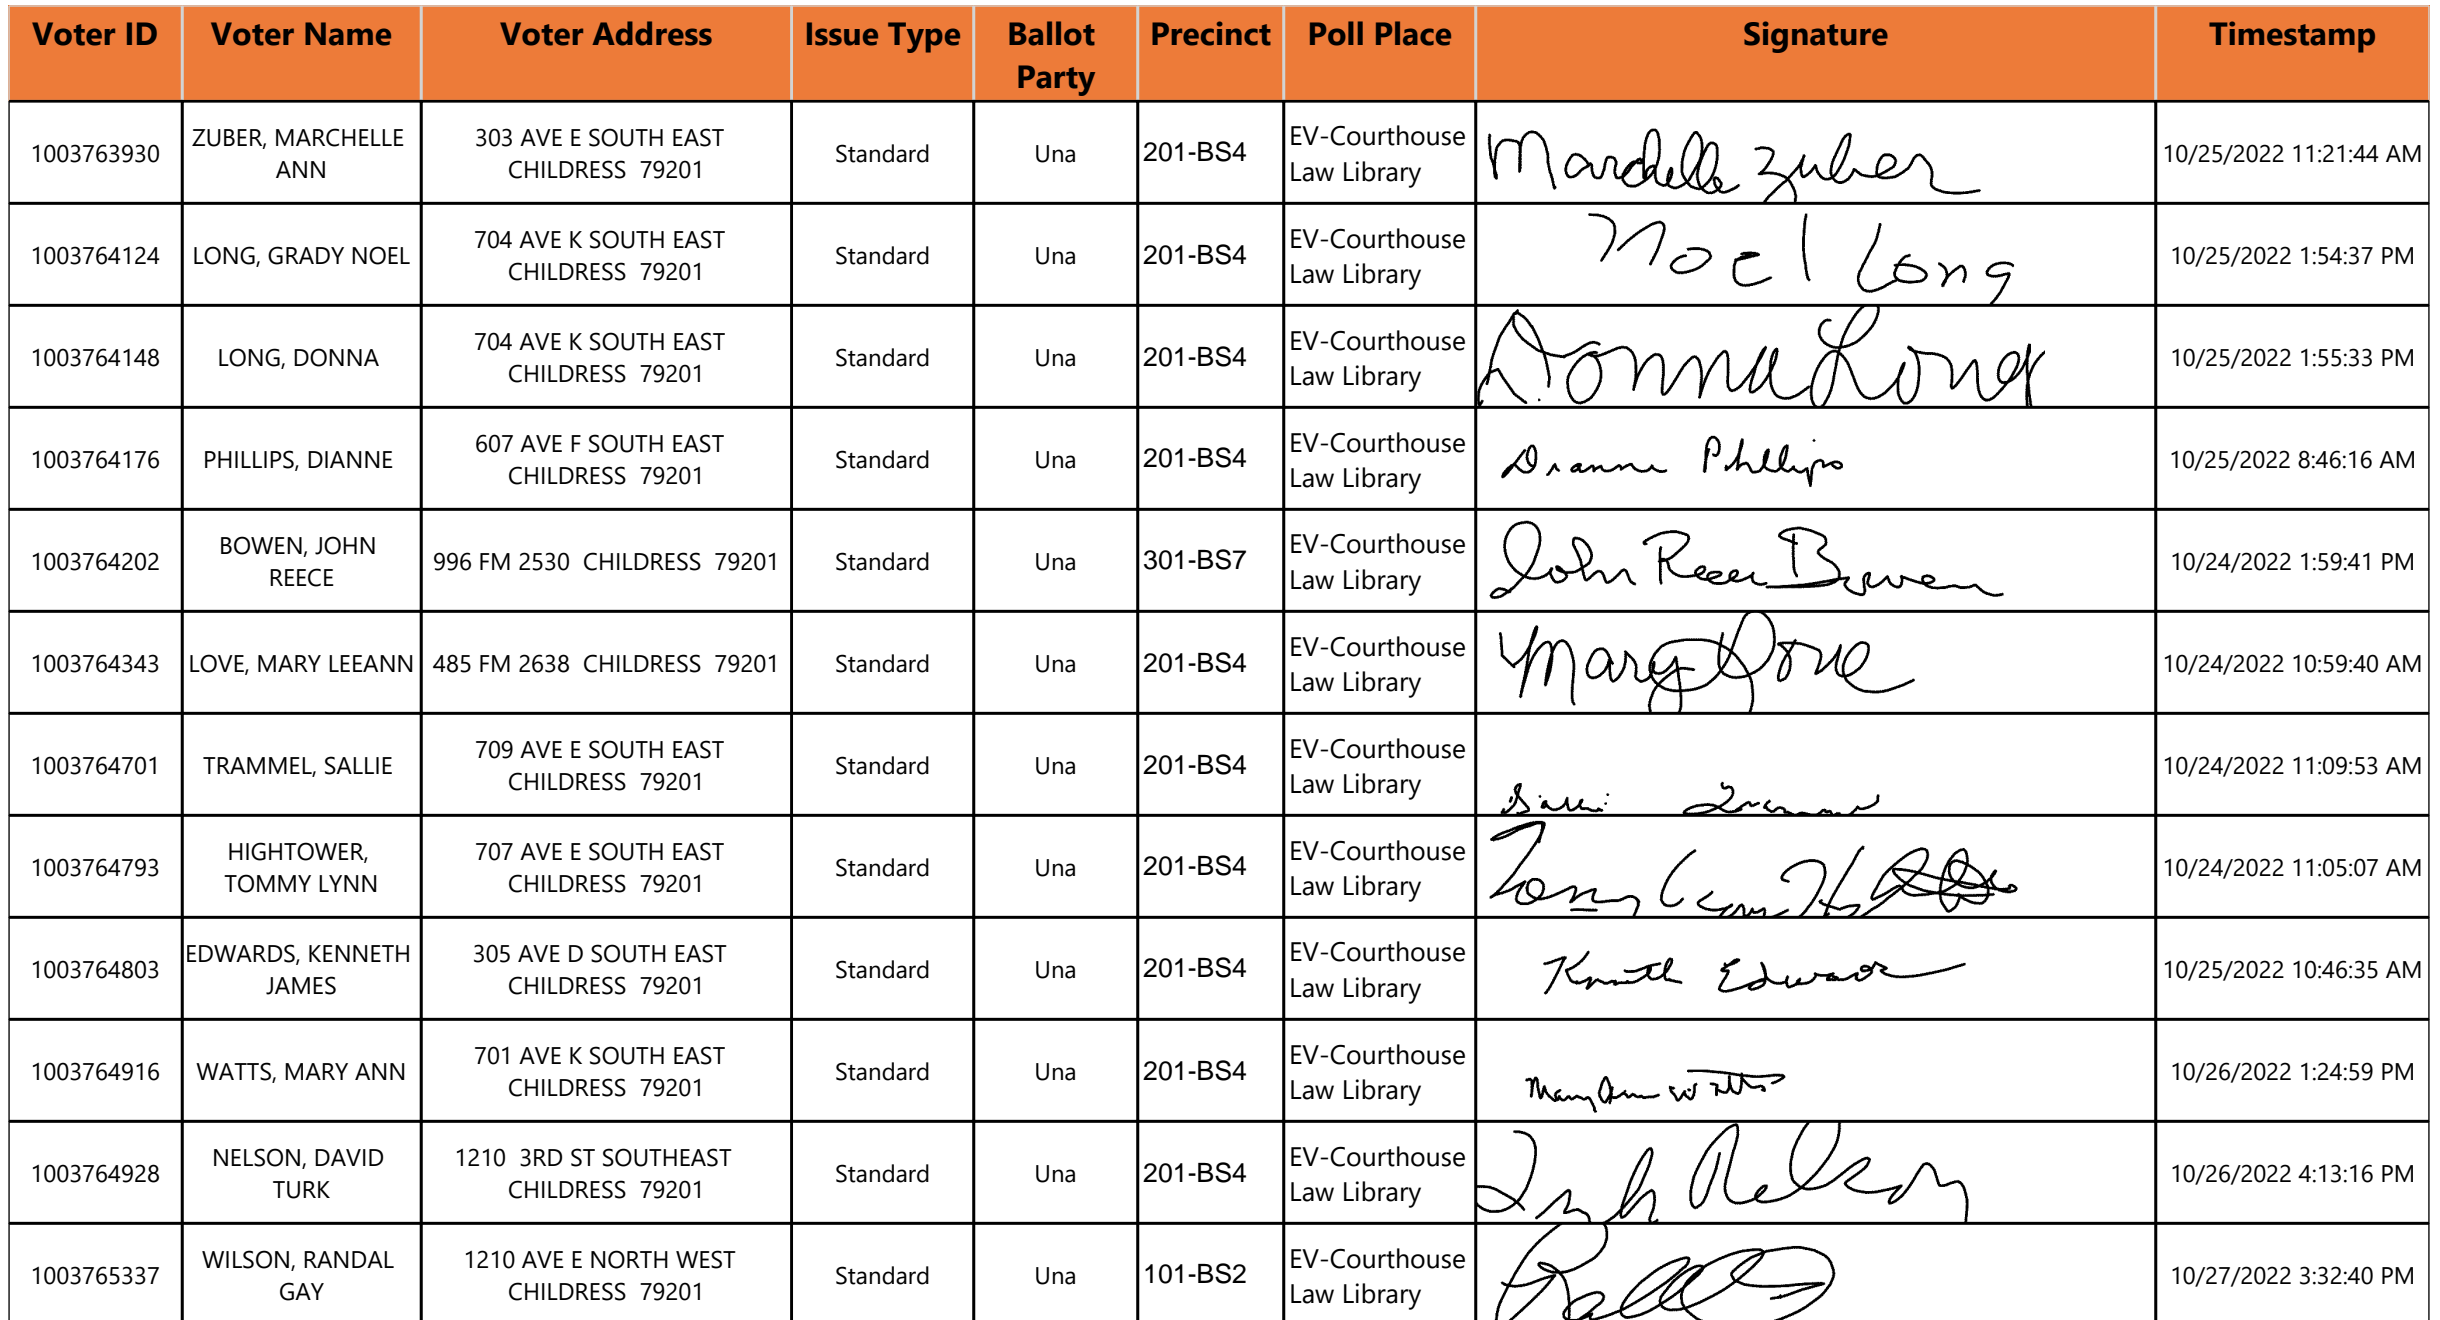 Voter ID Voter Name Voter Address Issue Type Ballot Party Precinct Poll Place Signature Timestamp
1003763930 ZUBER, MARCHELLE ANN 303 AVE E SOUTH EAST CHILDRESS 79201 Standard Una 201-BS4 EV-Courthouse Law Library Marchelle Zuber 10/25/2022 11:21:44 AM
1003764124 LONG, GRADY NOEL 704 AVE K SOUTH EAST CHILDRESS 79201 Standard Una 201-BS4 EV-Courthouse Law Library Noel Long 10/25/2022 1:54:37 PM
1003764148 LONG, DONNA 704 AVE K SOUTH EAST CHILDRESS 79201 Standard Una 201-BS4 EV-Courthouse Law Library Donna Long 10/25/2022 1:55:33 PM
1003764176 PHILLIPS, DIANNE 607 AVE F SOUTH EAST CHILDRESS 79201 Standard Una 201-BS4 EV-Courthouse Law Library Dianne Phillips 10/25/2022 8:46:16 AM
1003764202 BOWEN, JOHN REECE 996 FM 2530 CHILDRESS 79201 Standard Una 301-BS7 EV-Courthouse Law Library John Reece Bowen 10/24/2022 1:59:41 PM
1003764343 LOVE, MARY LEEANN 485 FM 2638 CHILDRESS 79201 Standard Una 201-BS4 EV-Courthouse Law Library Mary Love 10/24/2022 10:59:40 AM
1003764701 TRAMMEL, SALLIE 709 AVE E SOUTH EAST CHILDRESS 79201 Standard Una 201-BS4 EV-Courthouse Law Library Sallie 10/24/2022 11:09:53 AM
1003764793 HIGHTOWER, TOMMY LYNN 707 AVE E SOUTH EAST CHILDRESS 79201 Standard Una 201-BS4 EV-Courthouse Law Library 10/24/2022 11:05:07 AM
1003764803 EDWARDS, KENNETH JAMES 305 AVE D SOUTH EAST CHILDRESS 79201 Standard Una 201-BS4 EV-Courthouse Law Library Kenneth Edwards 10/25/2022 10:46:35 AM
1003764916 WATTS, MARY ANN 701 AVE K SOUTH EAST CHILDRESS 79201 Standard Una 201-BS4 EV-Courthouse Law Library Mary Ann Watts 10/26/2022 1:24:59 PM
1003764928 NELSON, DAVID TURK 1210 3RD ST SOUTHEAST CHILDRESS 79201 Standard Una 201-BS4 EV-Courthouse Law Library Turk Nelson 10/26/2022 4:13:16 PM
1003765337 WILSON, RANDAL GAY 1210 AVE E NORTH WEST CHILDRESS 79201 Standard Una 101-BS2 EV-Courthouse Law Library 10/27/2022 3:32:40 PM